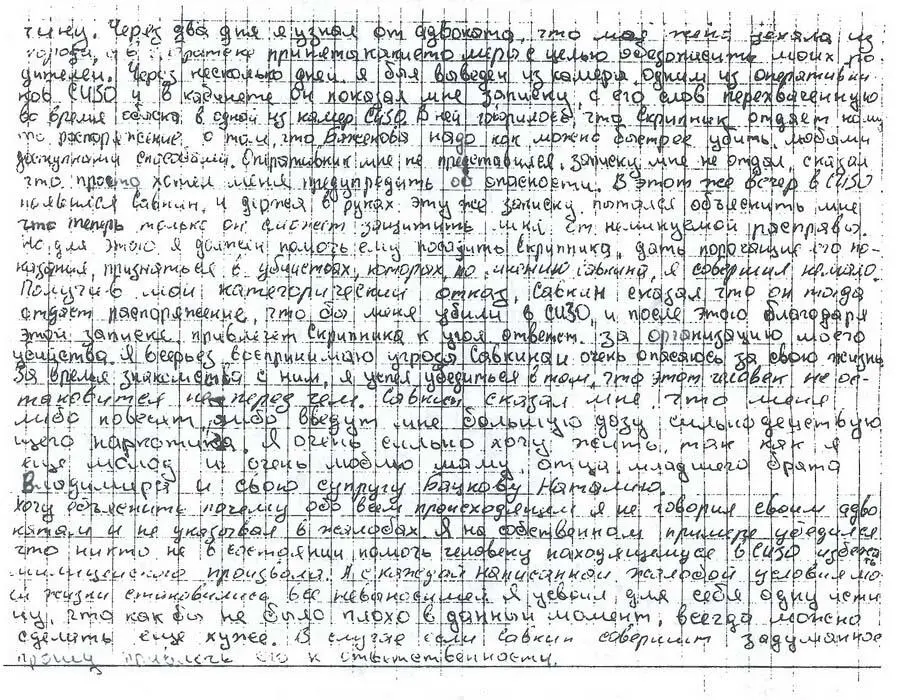 чину. Через два дня я узнал от адвоката, что моя жена уехала из
города, а в братске принята какието меры с целью обезопасить моих ро-
дителей. Через несколько дней я был выведен из камеры одним из оперативни
ков СИЗО и в кабинете он показал мне записку, с его слов перехваченную
во время обыска в одной из камер СИЗО. В ней говорилось, что Скрипник отдает кому
то распоряжение о том, что Баженова надо как можно быстрее убить любыми
доступными способами. Оперативник мне не представился, записку мне не отдал, сказал
что просто хотел меня предупредить об опасности. В этот же вечер в СИЗО
появился Савкин, и держа в руках эту же записку пытался объяснить мне
что теперь только он сможет защитить меня от неминуемой расправы.
Но для этого я должен помочь ему посадить Скрипника, дать порочащие его по-
казания, признаться в убийствах, которых по мнению Савкина, я совершил немало.
Получив мой категорический отказ, Савкин сказал что он тогда
отдаст распоряжение, что бы меня убили в СИЗО, и после этого благодаря
этой записке, привлечет Скрипника к угол ответст. за организацию моего
убийства. Я всерьез воспринимаю угрозы Савкина и очень опасаюсь за свою жизнь
За время знакомства с ним, я успел убедиться в том, что этот человек не ос-
тановится не перед чем. Савкин сказал мне, что меня
либо повесят, либо введут мне большую дозу сильнодействую
щего наркотика. Я очень сильно хочу жить, так как я
еще молод и очень люблю маму, отца младшего брата
Владимира и свою супругу Баукову Наталию.
Хочу объяснить почему обо всем происходящем я не говорил своим адво
катам и не указывал в жалобах. Я на собственном примере убедился
что никто не в состоянии помочь человеку находящемуся в СИЗО избежа
ть
милицейского произвола. А с каждой написанной жалобой условия мо
ей жизни становились все невыносимей. Я усвоил для себя одну исти
ну, что как бы не было плохо в данный момент, всегда можно
сделать еще хуже. В случае если Савкин совершит задуманное
прошу привлечь его к ответственности.